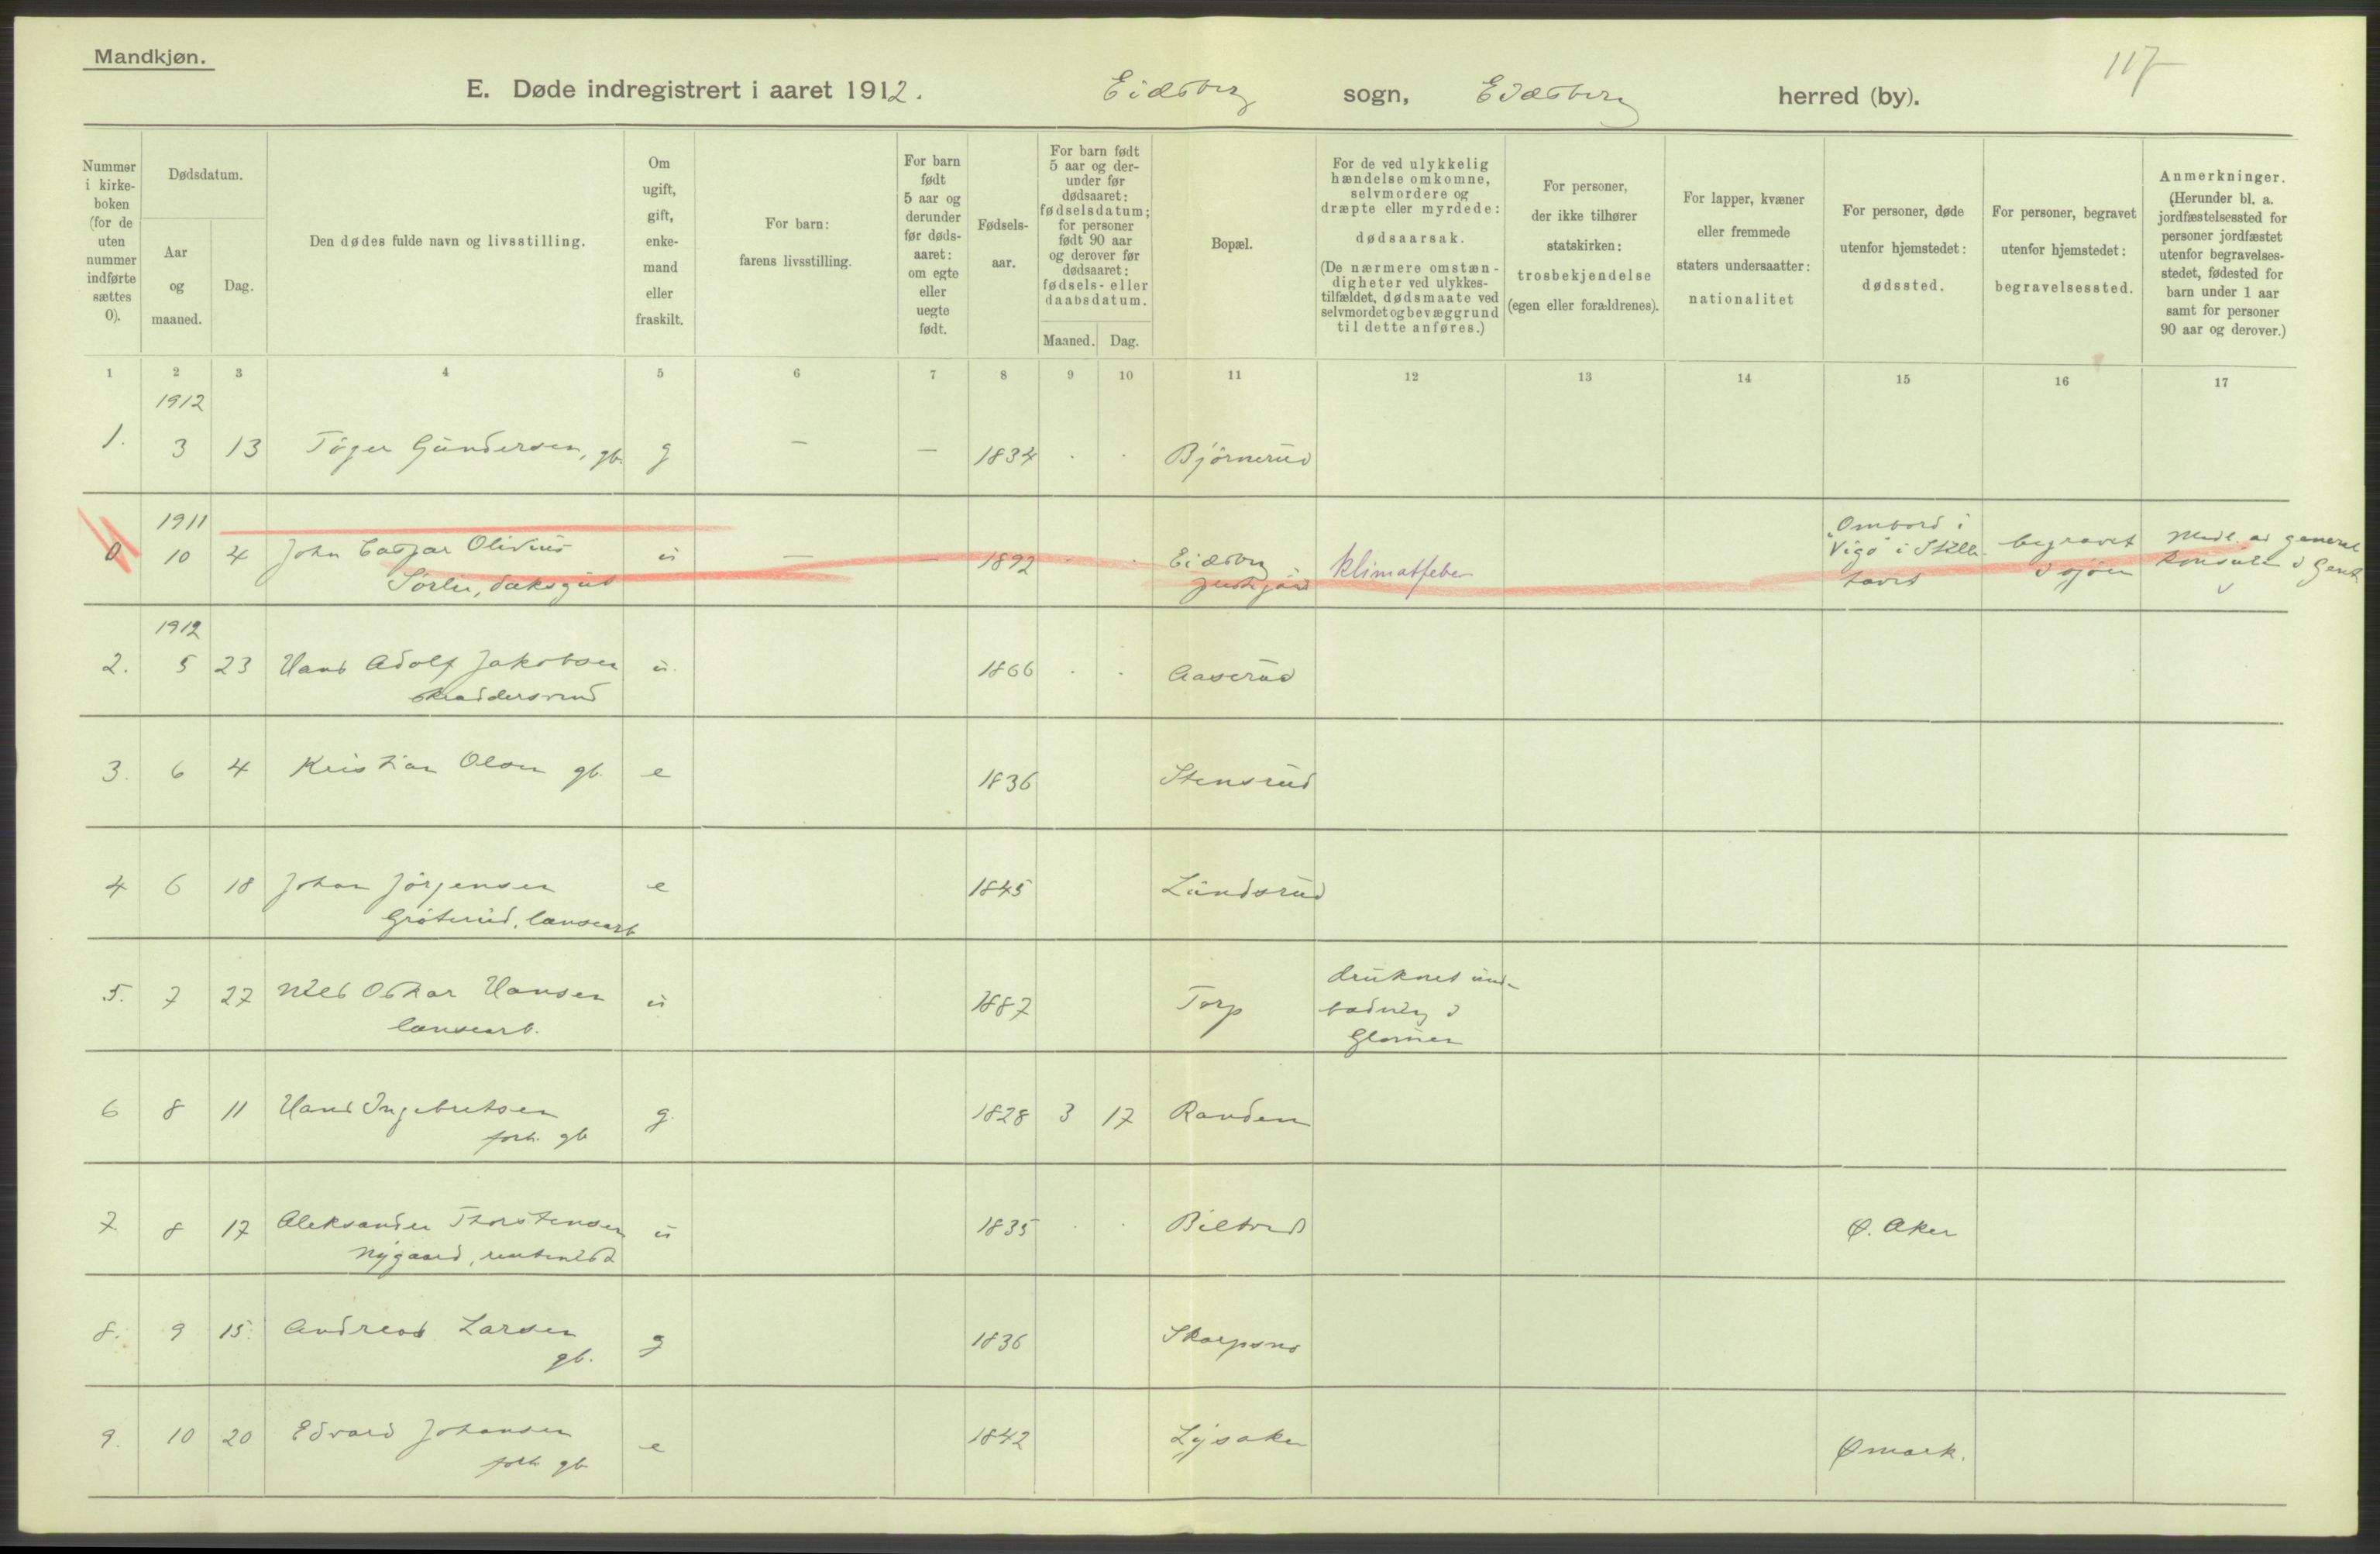 Mandkjøn.
117
E. Døde indregistrert i aaret 1912. Eidsberg sogn, Eidsberg herred (by).
Nummer i kirkeboken (for de uten nummer indførte sættes 0).
Dødsdatum.
Aar og maaned.
Dag.
Den dødes fulde navn og livsstilling.
Om ugift, gift, enkemand eller fraskilt.
For barn: farens livsstilling.
For barn født 5 aar og derunder før dødsaaret: om egte eller uegte født.
Fødselsaar.
For barn født 5 aar og derunder før dødsaaret: fødselsdatum; for personer født 90 aar og derover før dødsaaret: fødsels- eller daabsdatum.
Maaned. Dag.
Bopæl.
For de ved ulykkelig hændelse omkomne, selvmordere og dræpte eller myrdede: dødsaarsak. (De nærmere omstændigheter ved ulykkestilfældet, dødsmaate ved selvmordet og bevæggrund til dette anføres.)
For personer, der ikke tilhører statskirken: trosbekjendelse (egen eller forældrenes).
For lapper, kvæner eller fremmede staters undersaatter: nationalitet
For personer, døde utenfor hjemstedet: dødssted.
For personer, begravet utenfor hjemstedet: begravelsessted.
Anmerkninger. (Herunder bl. a. jordfæstelsessted for personer jordfæstet utenfor begravelsesstedet, fødested for barn under 1 aar samt for personer 90 aar og derover.)
1 2 3 4 5 6 7 8 9 10 11 12 13 14 15 16 17
1912
1. 3 13 Tøger Gundersen, gb. g — — 1834 . . Bjørnerud
1911
0 10 4 John Caspar Olivius u — — 1892 . . Eidsberg klimatfeber "Ombord i "Vigo" i Stille havet begravet i sjøen Medl. av general konsulen i Gent
Sørlie, dæksgut
1912
2. 5 23 Hans Adolf Jakobsen u. 1866 . . Aaserud
skræddersvend
3. 6 4 Kristian Olsen gb. e 1836 Stensrud
4 6 18 Johan Jørgensen e 1845 Lundsrud
Grøterud, lænsearb
5. 7 27 Nils Oskar Hansen u 1887 Torp druknet und. badning i Glommen
lænsearb.
6 8 11 Hans Ingebretsen g. 1828 3 17 Randem
forh. gb
7 8 17 Aleksander Thorstensen u 1835 . . Ø. Aker
Nygaard, rentenist
8. 9 15. Andreas Larsen g 1836 Skarpsno
gb.
9. 10 20 Edvard Johansen e 1842 Lysaker Ømark.
forh gb